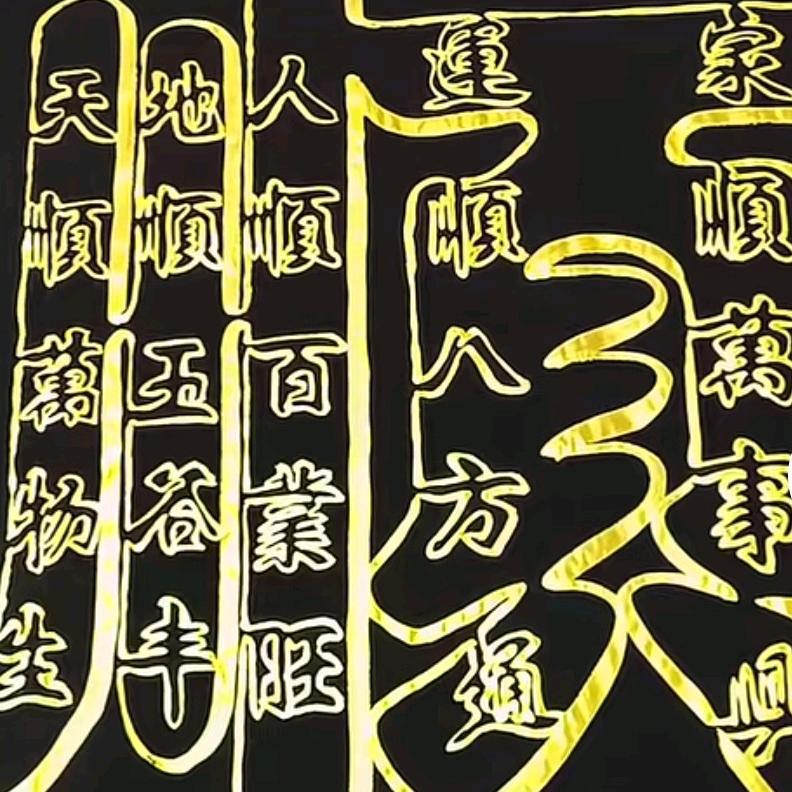 天順萬物生
地順五谷丰
人順百業旺
運順八方通
家順萬事興